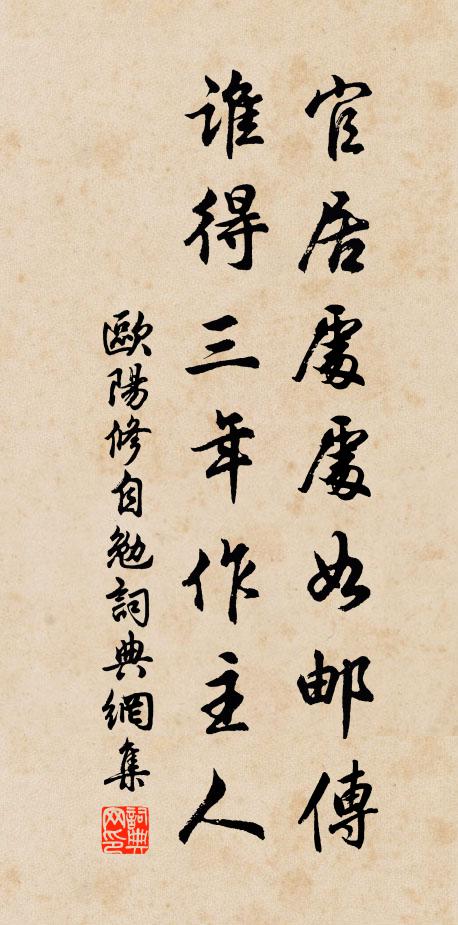 官居處處如邮傳
誰得三年作主人
歐陽修自勉詞典網集
詞典网印